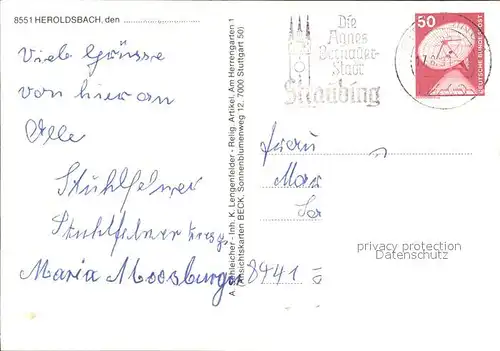 8551 HEROLDSBACH, den
Viele Grüsse
von hier an
Alle
Stuhlfelner
Stuhlfelner
Maria Moosburger
A. Schleicher - Inh. K. Lengenfelder - Relig. Artikel, Am Herrengarten 1
(Ansichtskarten BECK, Sonnenblumenweg 12, 7000 Stuttgart 50)
Die
Agnes
Bernauer-
Stadt
Straubing
50
DEUTSCHE BUNDESPOST
Frau
8441
privacy protection
Datenschutz